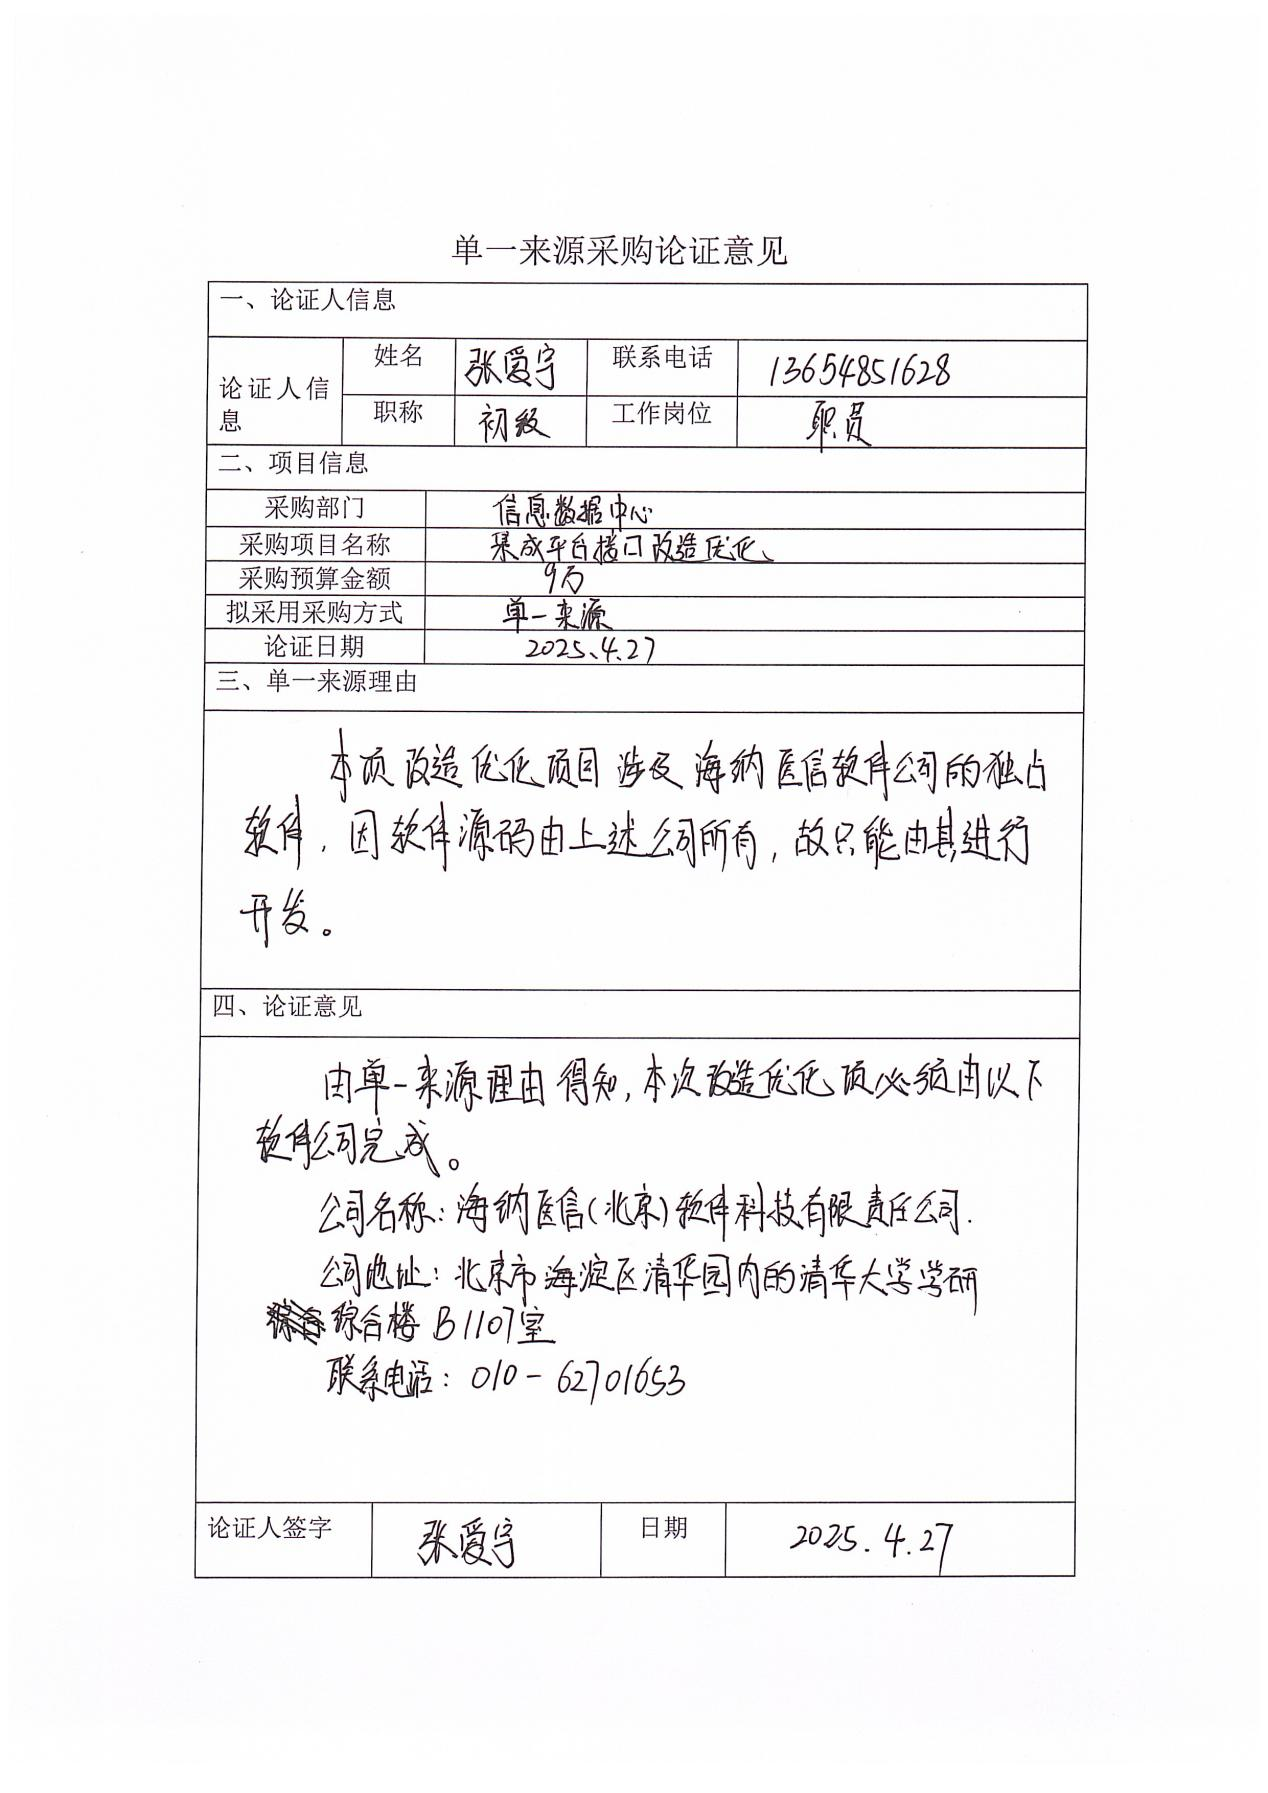 单一来源采购论证意见
一、论证人信息
论证人信息 姓名 张爱宇 联系电话 13654851628
职称 初级 工作岗位 职员
二、项目信息
采购部门 信息数据中心
采购项目名称 集成平台接口改造优化
采购预算金额 9万
拟采用采购方式 单一来源
论证日期 2025.4.27
三、单一来源理由
本项改造优化项目涉及海纳医信软件公司的独占
软件，因软件源码由上述公司所有，故只能由其进行
开发。
四、论证意见
由单一来源理由得知，本次改造优化项必须由以下
软件公司完成。
公司名称：海纳医信(北京)软件科技有限责任公司.
公司地址：北京市海淀区清华园内的清华大学学研
综合楼B1107室
联系电话：010-62701653
论证人签字 张爱宇 日期 2025.4.27